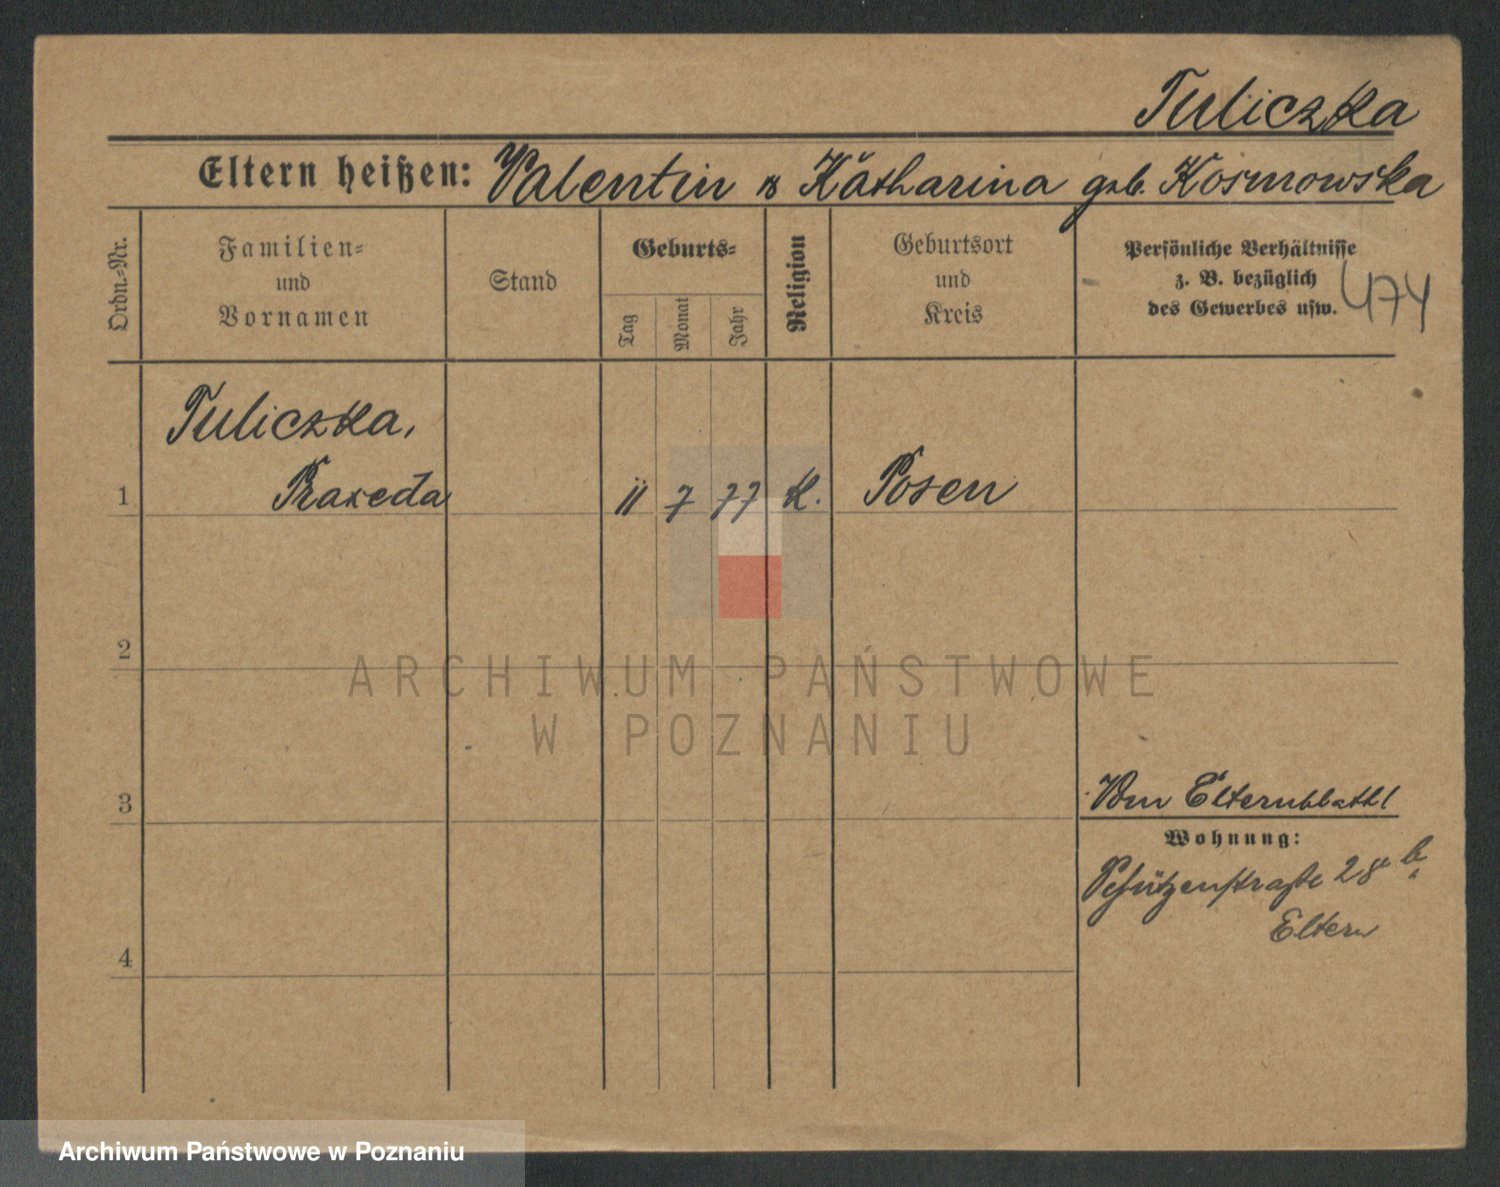 Tuliczka
Eltern heißen: Valentin u Katharina geb. Kosmowska
Ordn.-Nr.
Familien-
und
Vornamen
Stand
Geburts-
Tag
Monat
Jahr
Religion
Geburtsort
und
Kreis
Persönliche Verhältnisse
z. B. bezüglich
des Gewerbes usw.
474
Tuliczka,
1 Praxeda 11 7 77 K. Posen
2
ARCHIWUM PAŃSTWOWE
W POZNANIU
3
Vom Elternblatt
Wohnung:
Schützenstraße 28 b.
Eltern
4
Archiwum Państwowe w Poznaniu